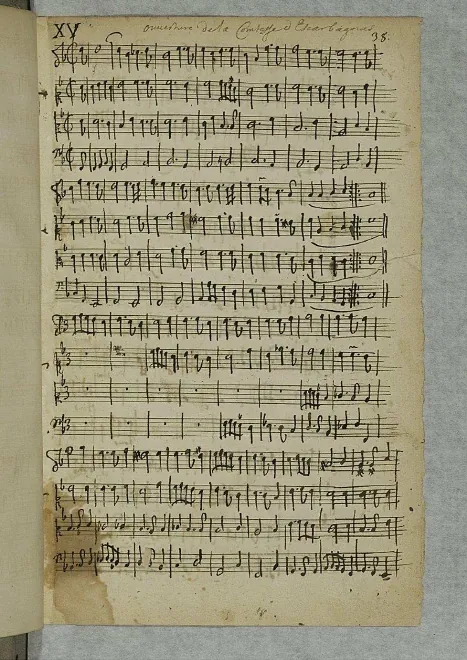 XV ouverture de la Comtesse d'Escarbagnas
38.